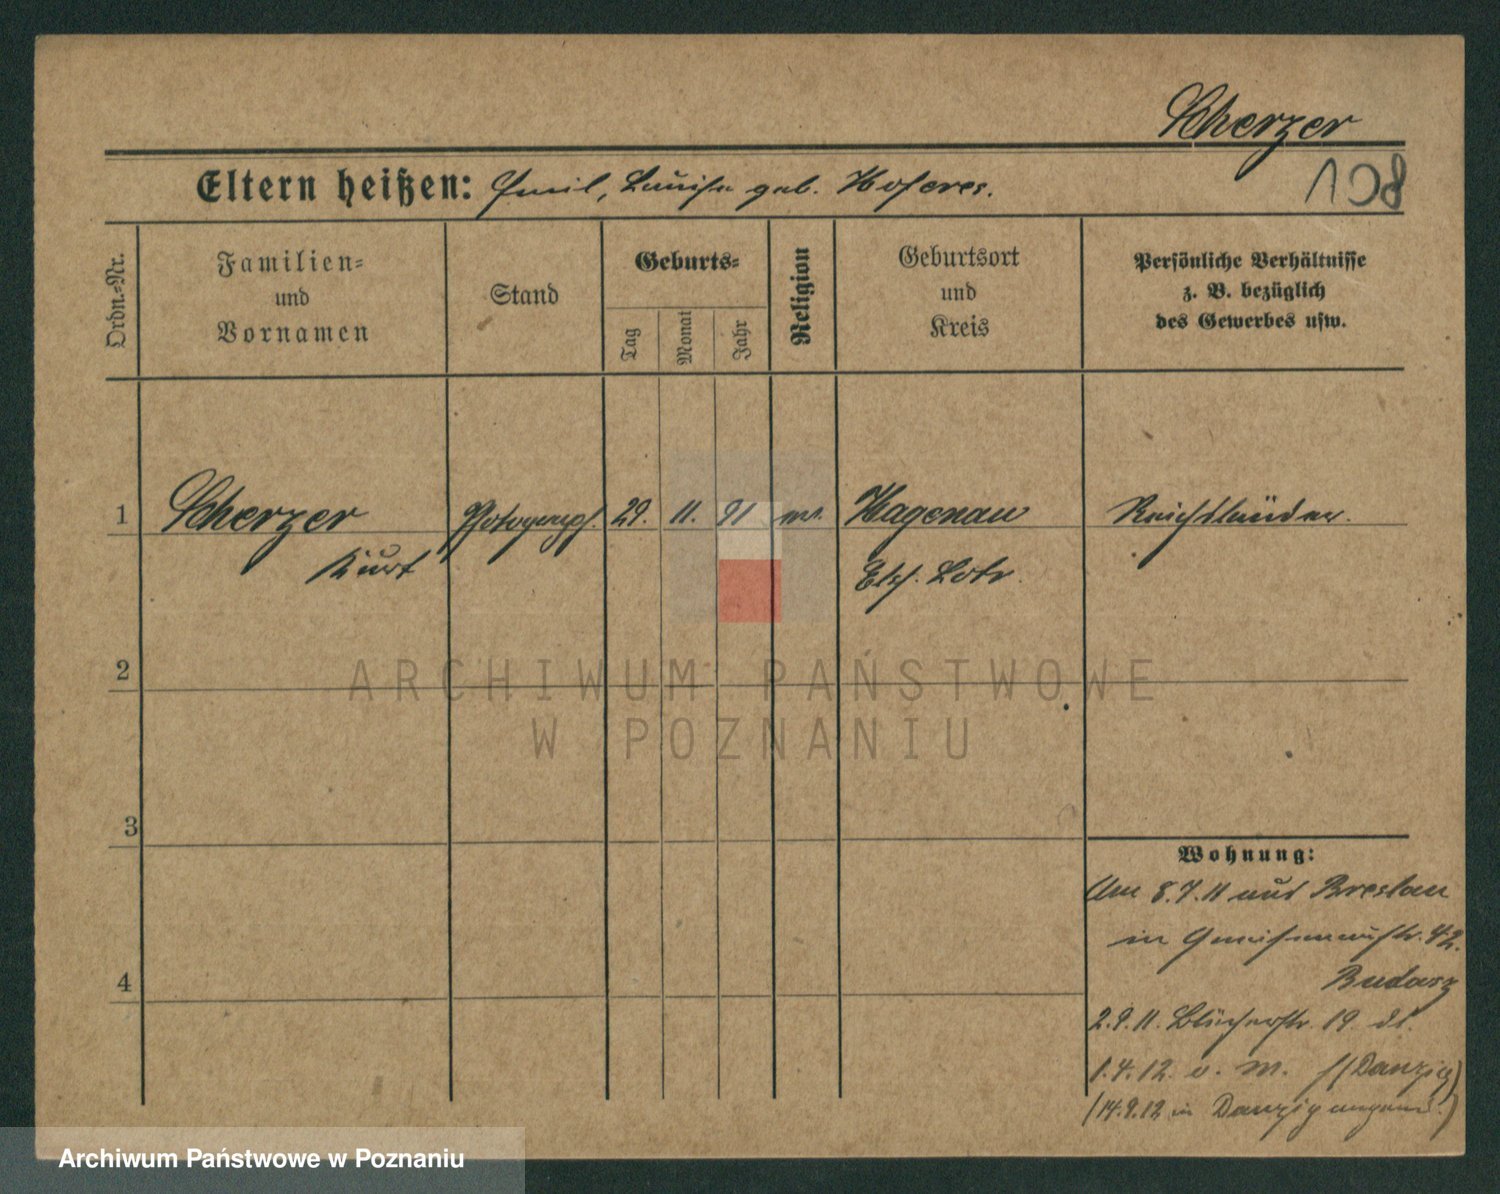 Scherzer
Eltern heißen: Emil, Louise geb. Hoferer.
108
Ordn.-Nr.
Familien-
und
Vornamen
Stand
Geburts-
Tag
Monat
Jahr
Religion
Geburtsort
und
Kreis
Persönliche Verhältnisse
z. B. bezüglich
des Gewerbes usw.
1 Scherzer Photograph. 29. 11. 91 ev. Hagenau Reichsländer.
Kurt Els. Lotr.
2
3
4
Wohnung:
Am 8.7.11 aus Breslau
in Gneisenaustr. 42.
Budasz
2.9.11. Blücherstr. 19
1.4.12. (Danzig)
(14.9.12 in Danzig angem.)
ARCHIWUM PAŃSTWOWE
W POZNANIU
Archiwum Państwowe w Poznaniu